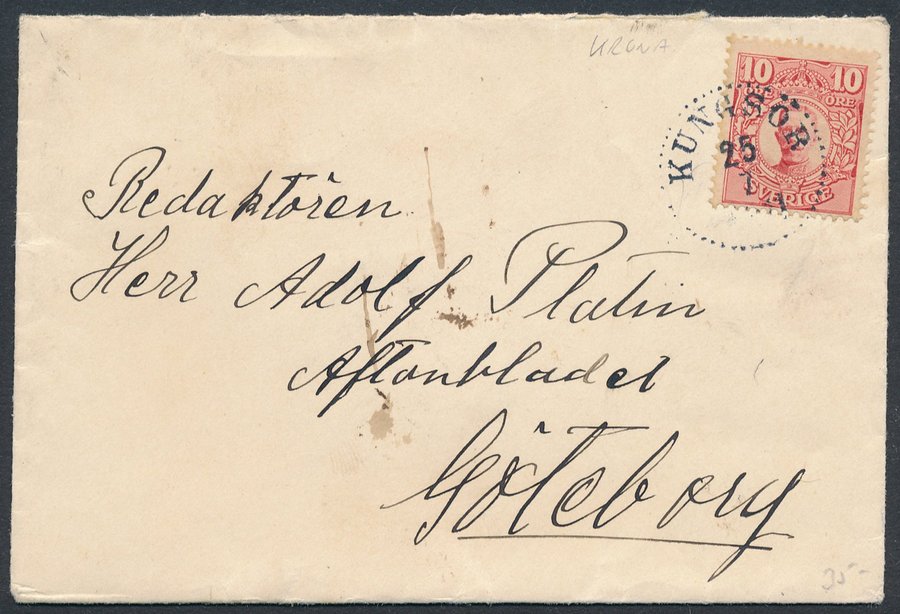 KRONA
10 10
ÖRE
SVERIGE
KUNGSÖR
25
1
Redaktören
Herr Adolf Platin
Aftonbladet
Göteborg
35-